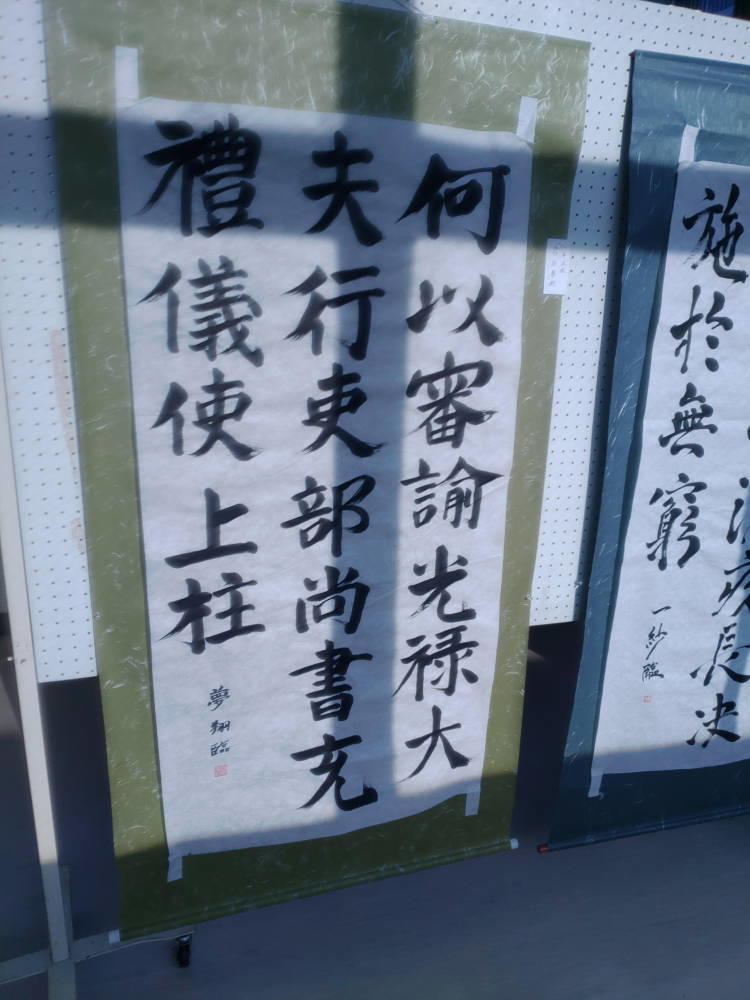 長决
施於無窮
一紗臨
何以審諭光禄大
夫行吏部尚書充
禮儀使上柱
夢翔臨